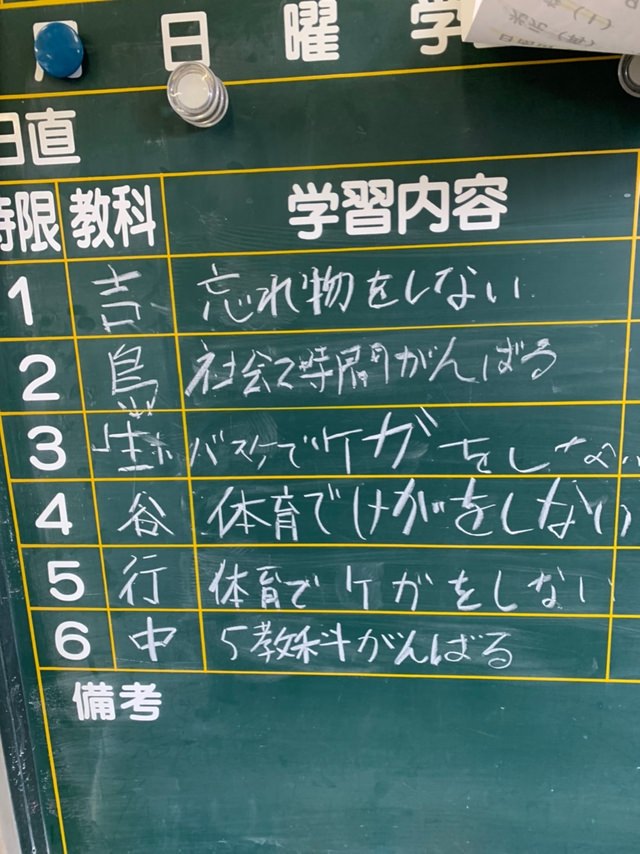 日 曜 学
日直
時限 教科 学習内容
1 吉 忘れ物をしない
2 鳥 社会2時間がんばる
3 バスケでケガをしない
4 谷 体育でけががをしない
5 行 体育でケガをしない
6 中 5教科がんばる
備考